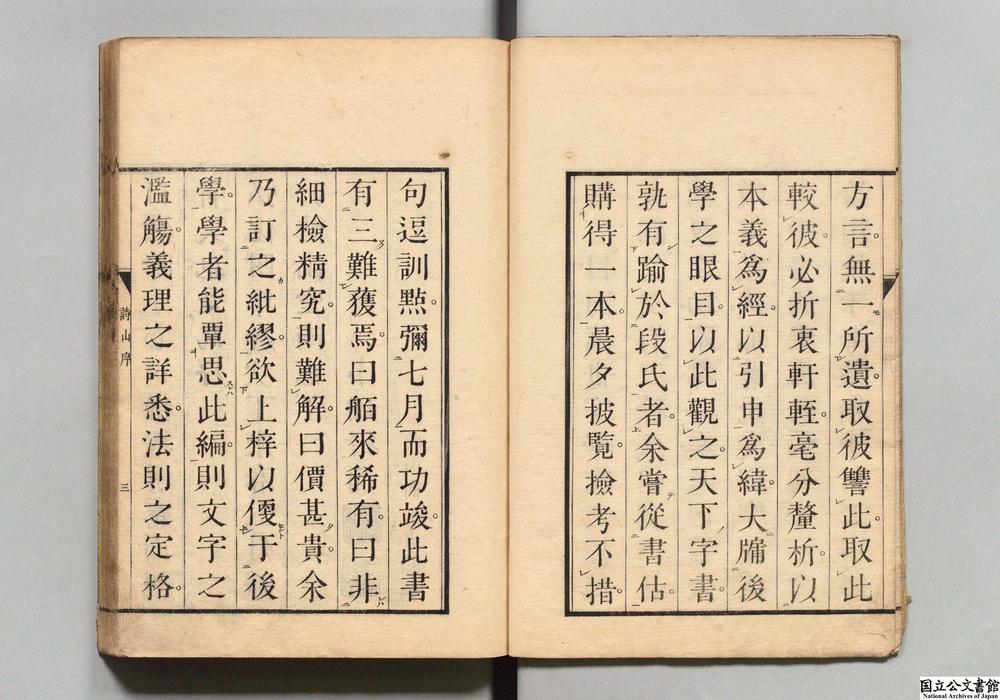 方言無一所遺取彼讐此取此
較彼必折衷軒輊毫分釐析以
本義爲經以引申爲緯大牖後
學之眼目以此觀之天下字書
孰有踰於段氏者余嘗從書估
購得一本晨夕披覧撿考不措
句逗訓㸃彌七月而功竣此書
有三難獲焉曰舶來稀有曰非
細檢精究則難解曰價甚貴余
乃訂之紕繆欲上梓以優于後
學學者能覃思此編則文字之
濫觴義理之詳悉法則之定格
詩山序
三
国立公文書館
National Archives of Japan